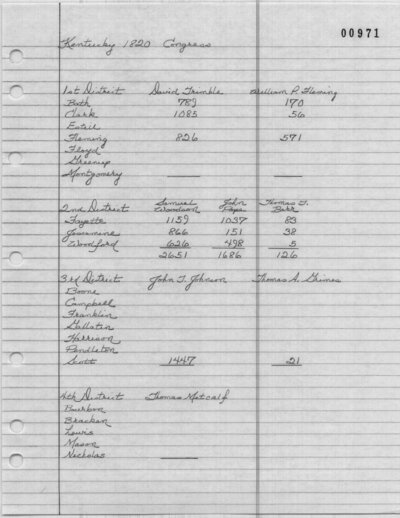 00971
Kentucky 1820 Congress
1st District David Trimble William P. Fleming
Bath 789 170
Clark 1085 56
Estill
Fleming 826 571
Floyd
Greenup
Montgomery
2nd District Samuel Woodson John Pope Thomas T. Barr
Fayette 1159 1037 83
Jessamine 866 151 38
Woodford 626 498 5
2651 1686 126
3rd District John T. Johnson Thomas A. Grimes
Boone
Campbell
Franklin
Gallatin
Harrison
Pendleton
Scott 1447 21
4th District Thomas Metcalf
Bourbon
Bracken
Lewis
Mason
Nicholas